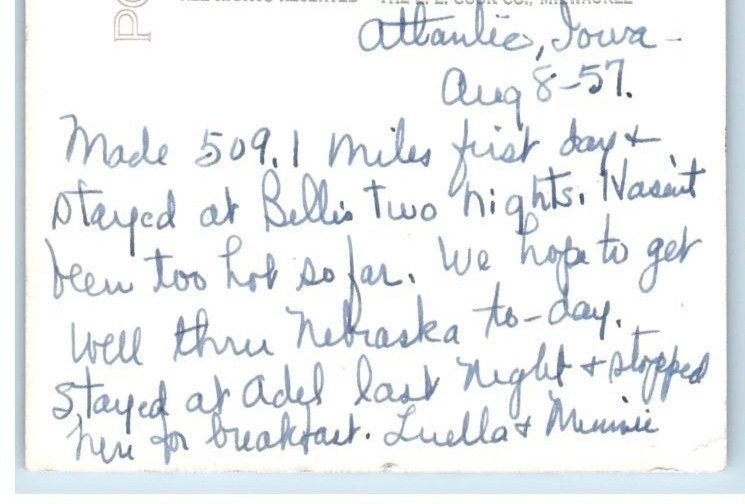 ALL RIGHTS RESERVED THE E. E. COOK CO., MILWAUKEE
Atlantic, Iowa -
Aug 8-57.
Made 509.1 miles first day &
stayed at Bellis two nights. Hasn't
been too hot so far. We hope to get
well thru Nebraska to-day.
Stayed at Adel last night & stopped
here for breakfast. Luella & Minnie